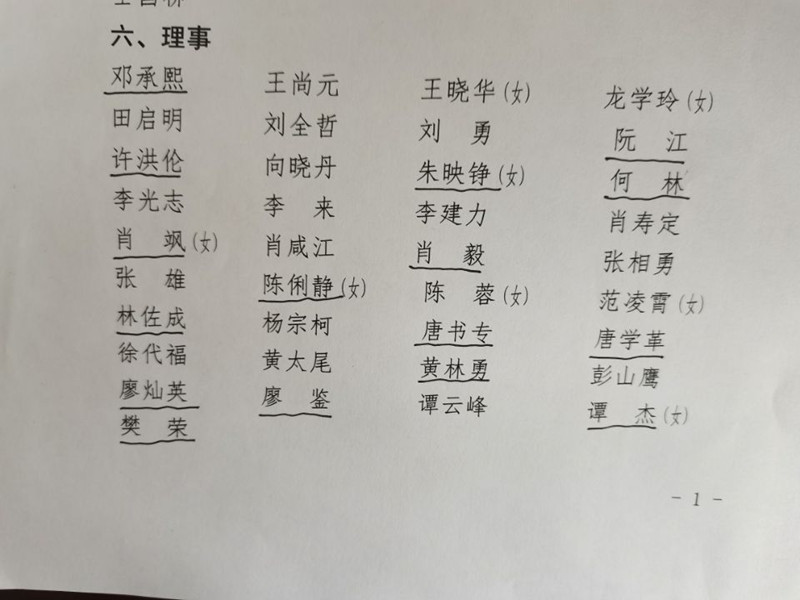 六、理事
邓承熙 王尚元 王晓华(女) 龙学玲(女)
田启明 刘全哲 刘 勇 阮 江
许洪伦 向晓丹 朱映铮(女) 何 林
李光志 李 来 李建力 肖寿定
肖 飒(女) 肖咸江 肖 毅 张相勇
张 雄 陈俐静(女) 陈 蓉(女) 范凌霄(女)
林佐成 杨宗柯 唐书专 唐学革
徐代福 黄太尾 黄林勇 彭山鹰
廖灿英 廖 鉴 谭云峰 谭 杰(女)
樊 荣
- 1 -